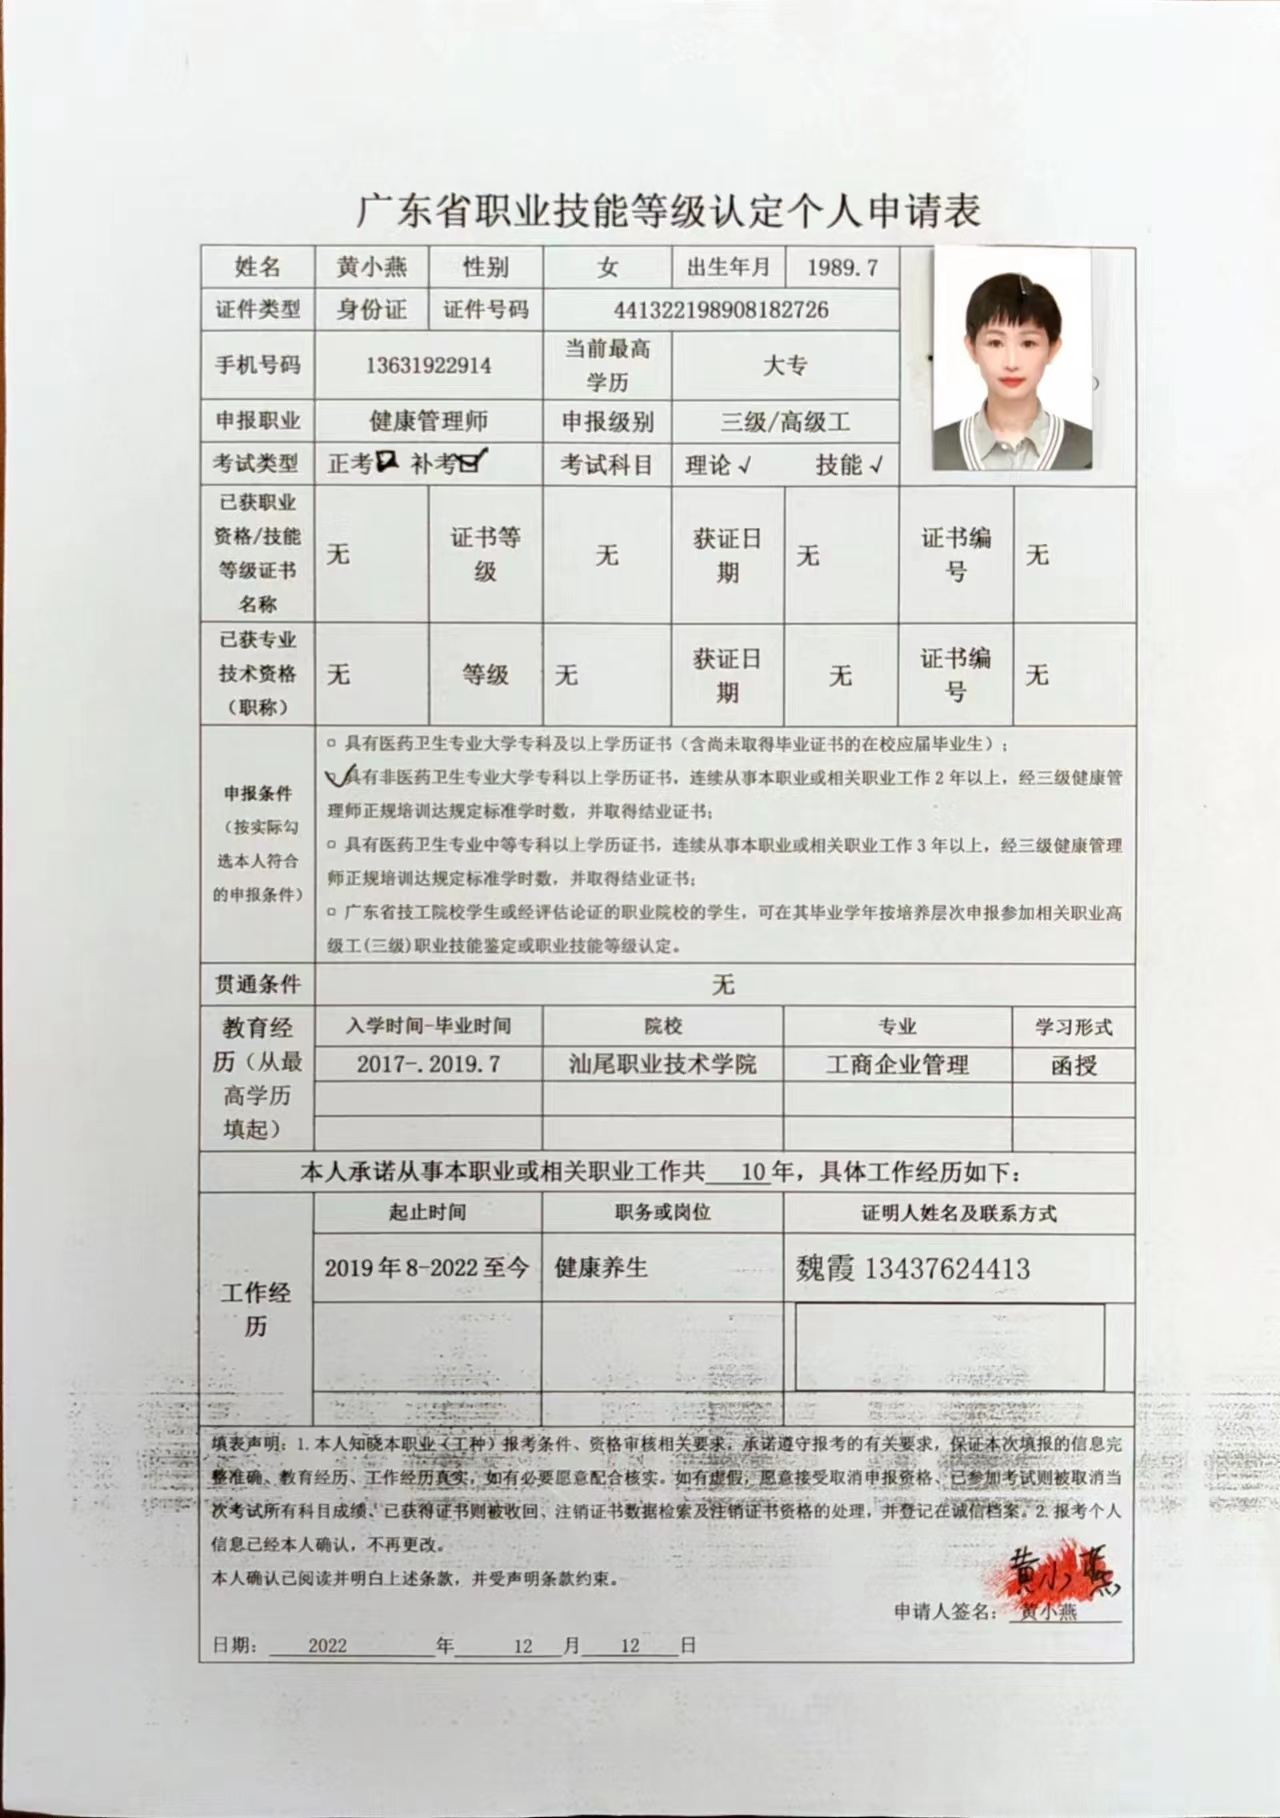 广东省职业技能等级认定个人申请表
姓名 黄小燕 性别 女 出生年月 1989.7
证件类型 身份证 证件号码 441322198908182726
手机号码 13631922914 当前最高学历 大专
申报职业 健康管理师 申报级别 三级/高级工
考试类型 正考 补考 考试科目 理论√ 技能√
已获职业资格/技能等级证书名称 无 证书等级 无 获证日期 无 证书编号 无
已获专业技术资格（职称） 无 等级 无 获证日期 无 证书编号 无
申报条件（按实际勾选本人符合的申报条件）
□ 具有医药卫生专业大学专科及以上学历证书（含尚未取得毕业证书的在校应届毕业生）；
✓具有非医药卫生专业大学专科以上学历证书，连续从事本职业或相关职业工作2年以上，经三级健康管
理师正规培训达规定标准学时数，并取得结业证书；
□ 具有医药卫生专业中等专科以上学历证书，连续从事本职业或相关职业工作3年以上，经三级健康管理
师正规培训达规定标准学时数，并取得结业证书；
□ 广东省技工院校学生或经评估论证的职业院校的学生，可在其毕业学年按培养层次申报参加相关职业高
级工(三级)职业技能鉴定或职业技能等级认定。
贯通条件 无
教育经历（从最高学历填起） 入学时间-毕业时间 院校 专业 学习形式
2017-.2019.7 汕尾职业技术学院 工商企业管理 函授
本人承诺从事本职业或相关职业工作共 10 年，具体工作经历如下：
工作经历 起止时间 职务或岗位 证明人姓名及联系方式
2019年8-2022至今 健康养生 魏霞 13437624413
填表声明：1.本人知晓本职业（工种）报考条件、资格审核相关要求，承诺遵守报考的有关要求，保证本次填报的信息完
整准确、教育经历、工作经历真实，如有必要愿意配合核实。如有虚假，愿意接受取消申报资格、已参加考试则被取消当
次考试所有科目成绩、已获得证书则被收回、注销证书数据检索及注销证书资格的处理，并登记在诚信档案。2.报考个人
信息已经本人确认，不再更改。
本人确认已阅读并明白上述条款，并受声明条款约束。
黄小燕
申请人签名： 黄小燕
日期： 2022 年 12 月 12 日